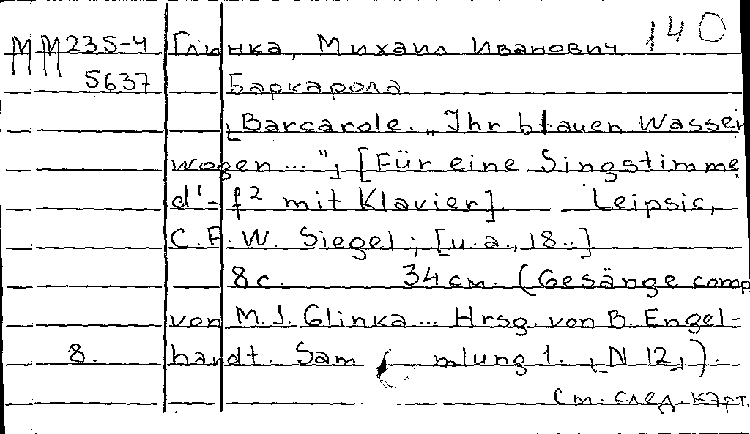 140
ММ235-4 Глинка, Михаил Иванович
5637 Баркарола
[Barcarole. „Ihr blauen Wasser
wogen..."; [Für eine Singstimme
d'-f² mit Klavier]. Leipsic,
C.F.W. Siegel; [u.a., 18..]
8с. 34см. (Gesänge comp
von M.J. Glinka... Hrsg. von B. Engel-
8. hardt. Sam mlung 1. [N 12]).
См. след. карт.